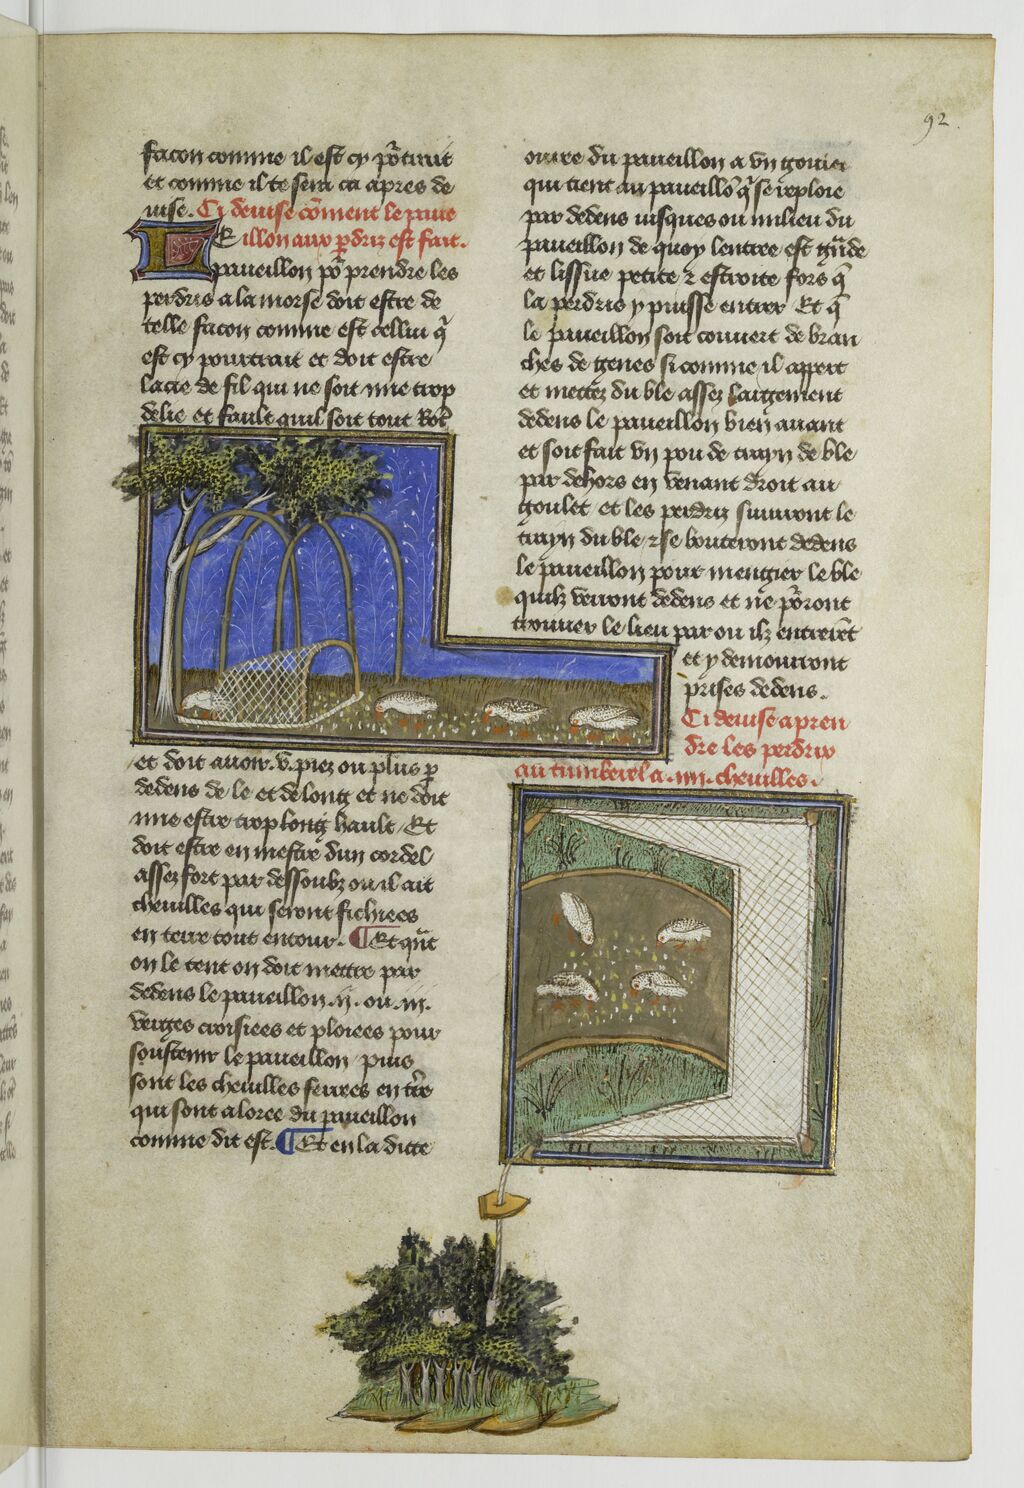 92.
facon comme il est cy po͂trait
et comme il te sera ca apres de
uise. Ci deuise co͂ment le paue
illon aux p̱driz est fait.
LE
paueillon po͂ prendre les
perdris a la morse doit estre de
telle facon comme est cellui q̄
est cy pourtrait et doit estre
lacie de fil qui ne soit mie trop
delie et fault quil soit tout
et doit auoir .v. piez ou plus p̱
dedens de le et de long et ne doit
mie estre trop long hault / Et
doit estre en mestre dun cordel
assez fort par dessoubz ou il ait
cheuilles qui seront fichiees
en terre tout entour. ¶ Et qu͂t
on le tent on doit mettre par
dedens le paueillon .ij. ou .iij.
verges croisiees et ploiees pour
soustenir le paueillon / puis
sont les cheuilles ferres en t͂re
qui sont a loree du paueillon
comme dit est. ¶ Et en la ditte
ouure du paueillon a vn goulet
qui tient au paueillo͂ q̄ se reploie
par dedens iusques ou milieu du
paueillon de quoy lentree est gͣnde
et lissue petite ⁊ estroite fors q̄
la perdris y puisse entrer Et q̄
le paueillon soit couuert de bran
ches de genes si comme il appert
et mettez du ble assez largement
dedens le paueillon bien auant
et soit fait vn pou de trayn de ble
par dehors en venant droit au
goulet et les perdriz suiuront le
trayn du ble ⁊ se bouteront dedens
le paueillon pour mengier le ble
quilz verront dedens et ne po͂ront
trouuer le lieu par ou ilz entrere͂t
et y demourront
prises dedens.
Ci deuise a pren
dre les perdrix
au tumberel a .iiij. cheuilles.